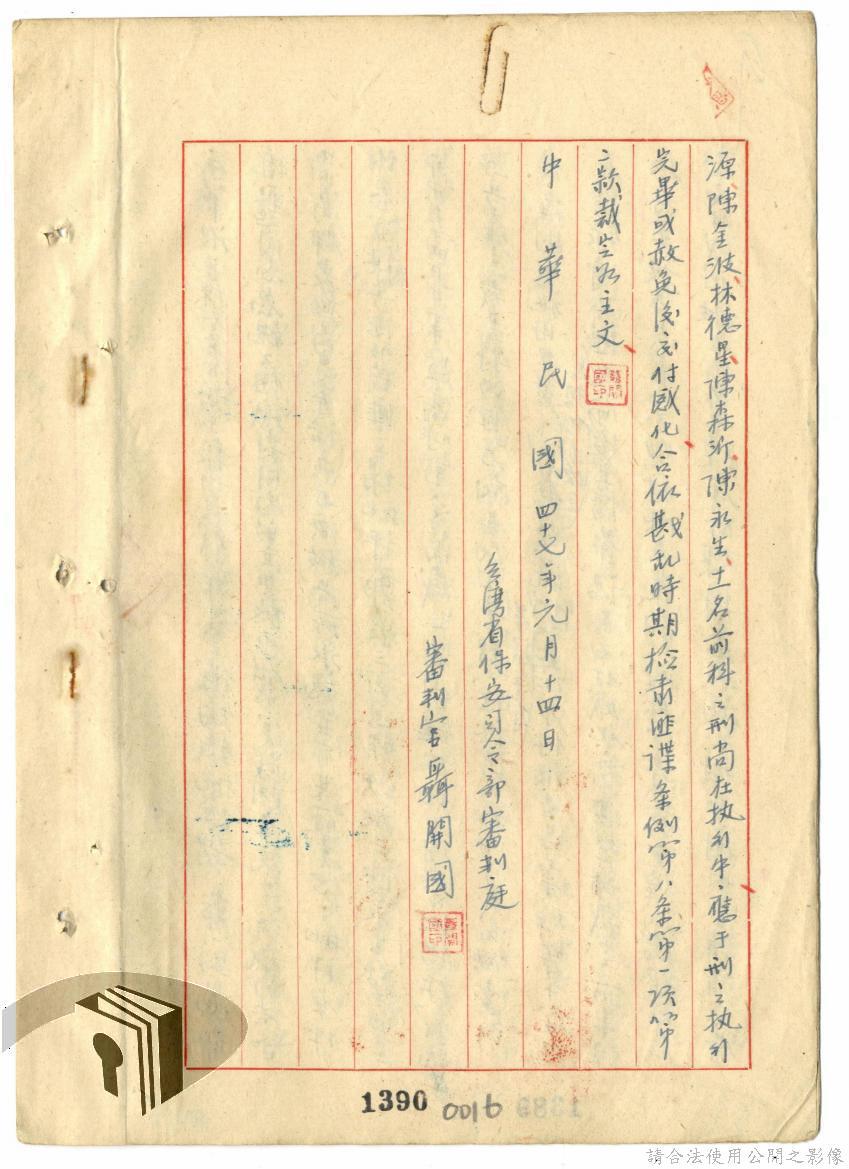 源陳金波林德星陳森沂陳永生十一名前科之刑尚在执行中應于刑之执行
完畢或赦免後交付感化合依戡乱時期檢肃匪谍条例第八条第一項第
二款裁定如主文
中華民國四十七年元月十四日
台灣省保安司令部審判庭
審判官聶開國
1390 0016
請合法使用公開之影像